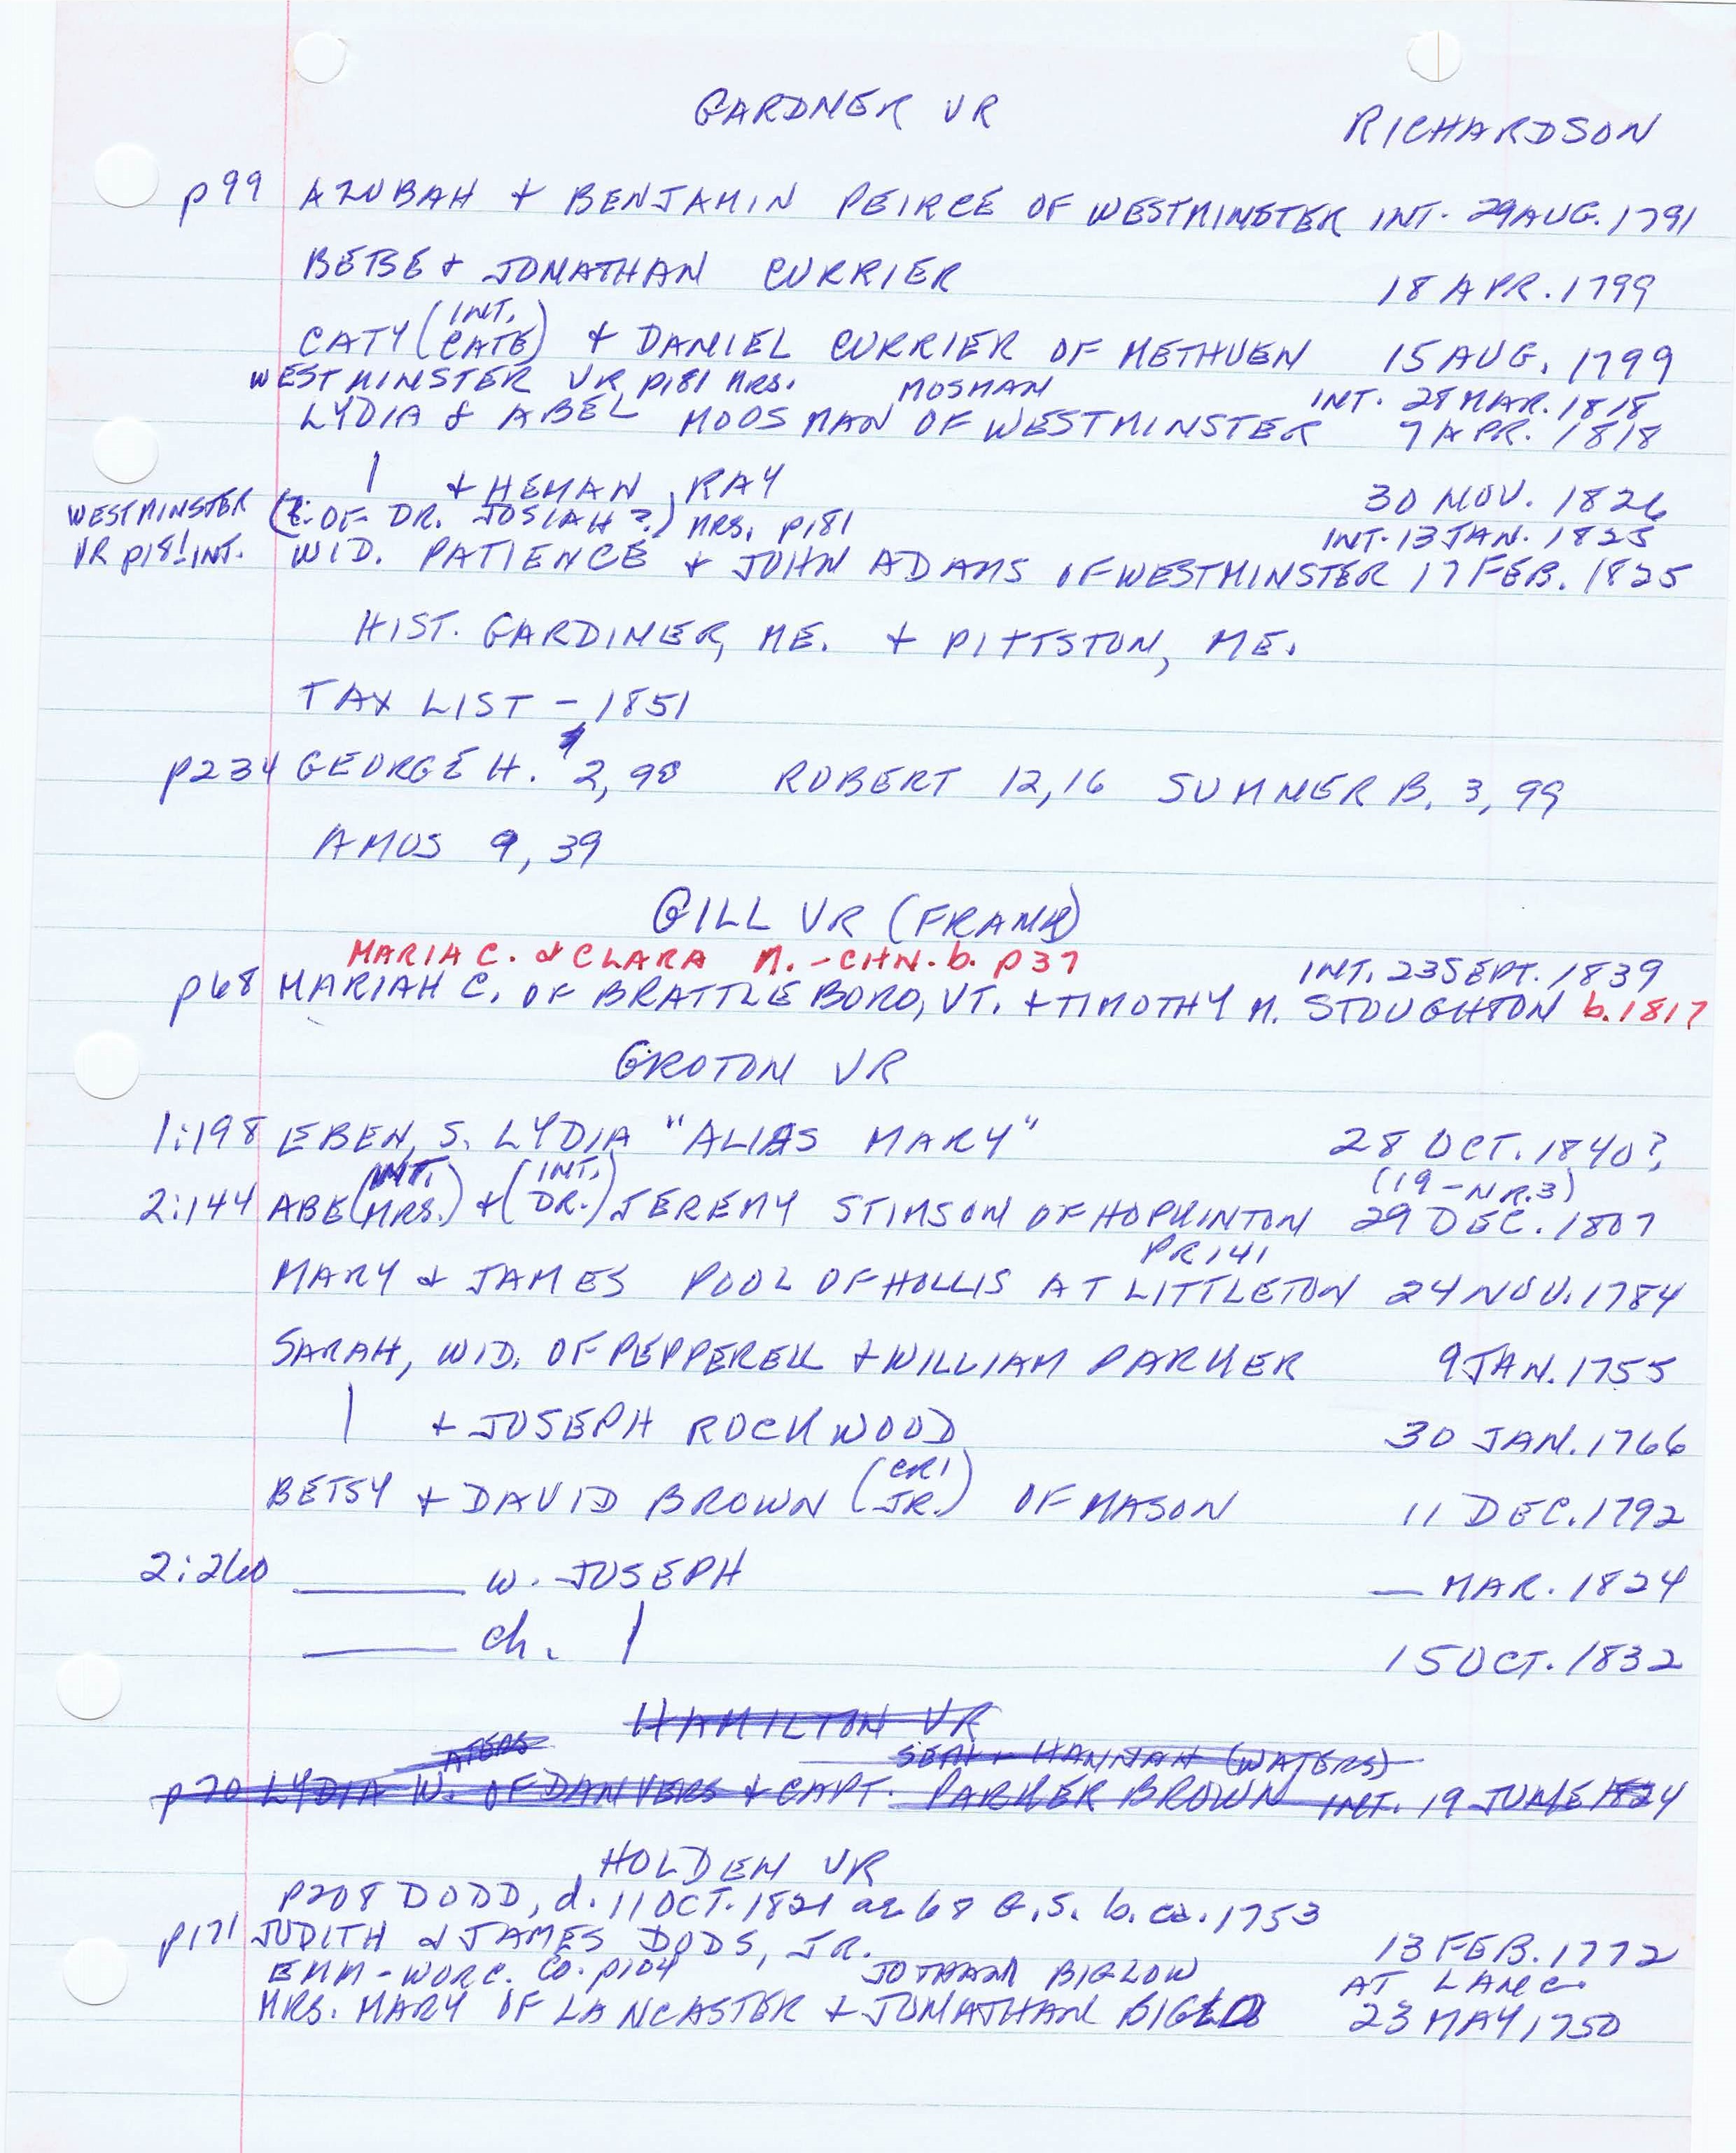 GARDNER VR
RICHARDSON
p99 AZUBAH + BENJAMIN PEIRCE OF WESTMINSTER INT. 29 AUG. 1791
BEBE + JONATHAN CURRIER 18 APR. 1799
(INT.
CATY (CATE) + DANIEL CURRIER OF METHUEN 15 AUG. 1799
WESTMINSTER VR p181 MRS. MOSMAN INT. 28 MAR. 1818
LYDIA & ABEL MOOSMAN OF WESTMINSTER 7 APR. 1818
| + HEMAN RAY 30 NOV. 1826
WESTMINSTER (OF DR. JOSIAH?) MRS. p181 INT. 13 JAN. 1825
VR p181 INT. WID. PATIENCE + JOHN ADAMS OF WESTMINSTER 17 FEB. 1825
HIST. GARDINER, ME. + PITTSTON, ME.
TAX LIST - 1851
p234 GEORGE H. $2,98 ROBERT 12,16 SUMNER B. 3,99
AMOS 9,39
GILL VR (FRANK)
MARIA C. & CLARA M. - CHN. b. p37 INT. 23 SEPT. 1839
p68 MARIAH C. OF BRATTLEBORO, VT. + TIMOTHY M. STOUGHTON b. 1817
GROTON VR
1:198 EBEN, S. LYDIA "ALIAS MARY" 28 OCT. 1840?
(INT. (INT.) (19-NR.3)
2:144 ABE (MRS.) + (DR.) JEREMY STIMSON OF HOPKINTON 29 DEC. 1807
PR 141
MARY & JAMES POOL OF HOLLIS AT LITTLETON 24 NOV. 1784
SARAH, WID. OF PEPPERELL + WILLIAM PARKER 9 JAN. 1755
| + JOSEPH ROCKWOOD 30 JAN. 1766
(CR1)
BETSY + DAVID BROWN (JR.) OF MASON 11 DEC. 1792
2:260 ____ w. JOSEPH — MAR. 1824
____ ch. | 15 OCT. 1832
HAMILTON VR
ATERS HANNAH (WATERS)
p70 LYDIA W. OF DANVERS & CAPT. PARKER BROWN INT. 19 JUNE 1824
HOLDEN VR
p208 DODD, d. 11 OCT. 1821 ae 68 G.S. b. ca. 1753
p171 JUDITH & JAMES DODS, JR. 13 FEB. 1772
EMM - WORC. CO. p104 JOTHAM BIGLOW AT LANC.
MRS. MARY OF LANCASTER + JONATHAN BIGLO 23 MAY 1750